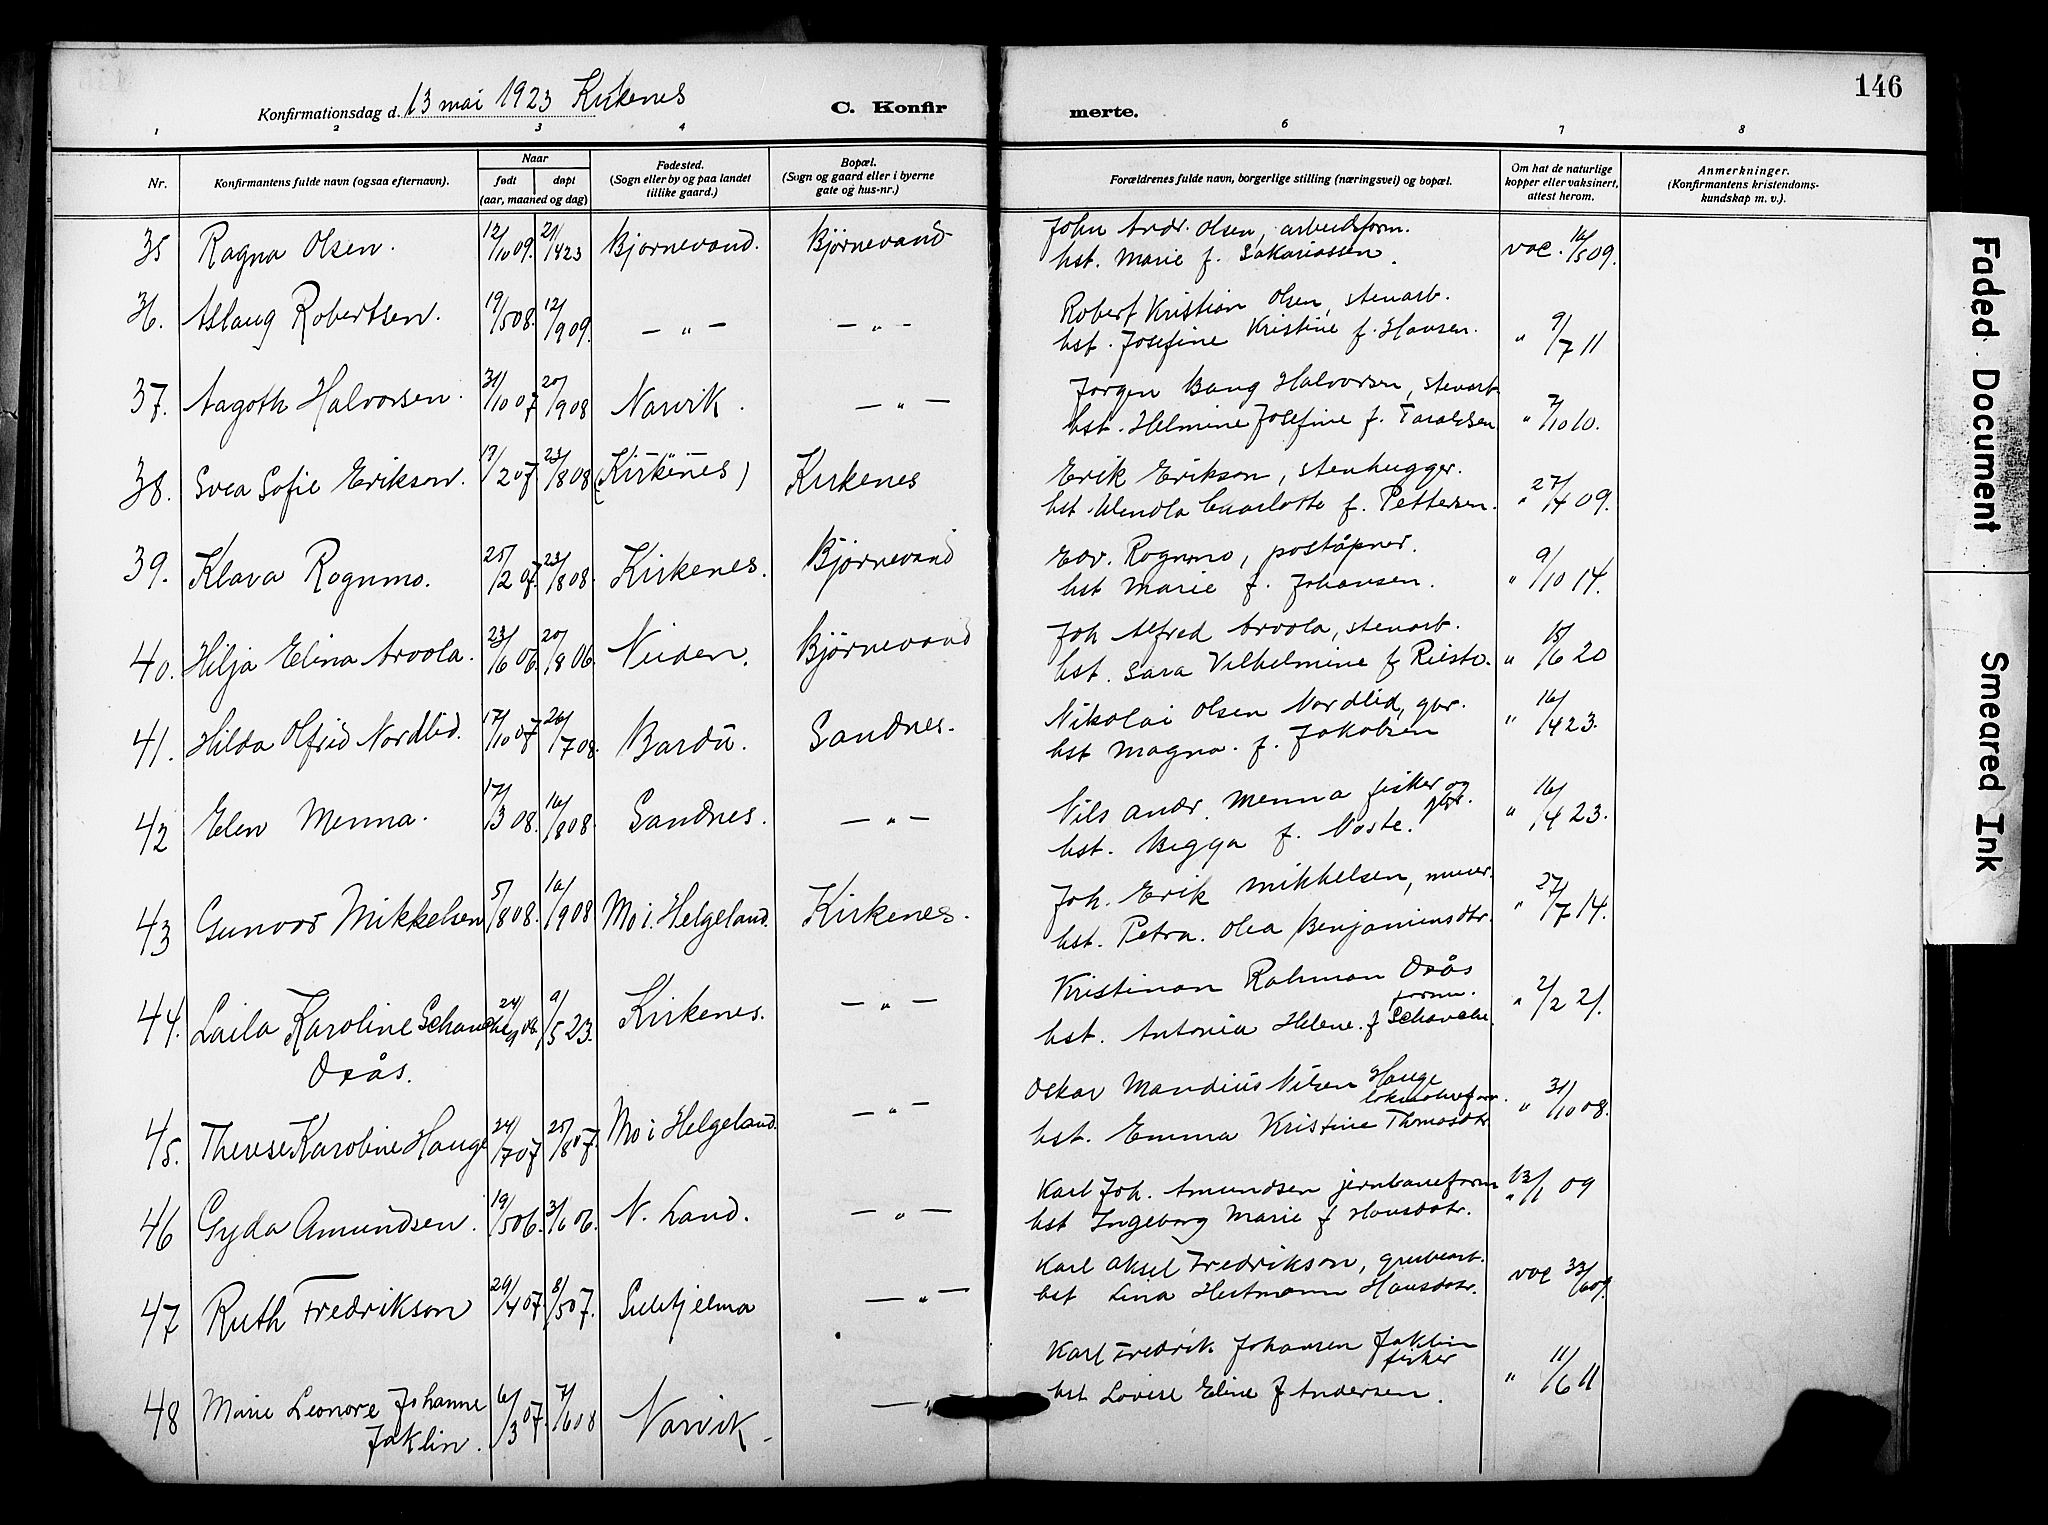 146
Konfirmationsdag d. 13 mai 1923 Kirkenes
C. Konfir merte.
1 2 3 4 5 6 7 8
Nr. Konfirmantens fulde navn (ogsaa efternavn). Naar født døpt (aar, maaned og dag) Fødested. (Sogn eller by og paa landet tillike gaard.) Bopæl. (Sogn og gaard eller i byerne gate og hus-nr.) Forældrenes fulde navn, borgerlige stilling (næringsvei) og bopæl. Om hat de naturlige kopper eller vaksinert, attest herom. Anmerkninger. (Konfirmantens kristendoms-kundskap m. v.).
35 Ragna Olsen. 12/10 09. 21/4 23 Bjørnevand. Bjørnevand John Andr. Olsen, arbeidsform.
hst. Marie f. Sakariassen. vac. 16/5 09.
36. Aslaug Robertsen. 19/5 08. 12/9 09. — " — — " — Robert Kristian Olsen, stenarb.
hst. Josefine Kristine f. Hansen. " 9/7 11
37. Aagoth Halvorsen. 31/10 07 20/9 08 Narvik. — " — Jørgen Bang Halvorsen, stenarb.
hst. Helmine Josefine f. Taraldsen " 7/10 10.
38. Svea Sofie Erikson. 17/2 07 23/8 08 (Kirkenes) Kirkenes Erik Erikson, stenhugger.
hst. f. Pettersen. " 27/4 09.
39. Klara Rognmo. 25/2 07. 23/8 08. Kirkenes. Bjørnevand Edv. Rognmo, poståpner.
hst Marie f. Johansen. " 9/10 14.
40. Hilja Elina Arvola. 23/6 06. 20/8 06. Neiden. Bjørnevand Joh Alfred Arvola, stenarb.
hst. Sara Vilhelmine f. Riesto. " 15/6 20
41. Hilda Olfrid Nordlid. 17/10 07 26/7 08. Bardu. Sandnes. Nikolai Olsen Nordlid, gbr.
hst Magna. f. Jakobsen " 16/4 23.
42 Elen Menna. 17/3 08. 16/8 08. Sandnes. — " — Nils Andr. Menna fisker og gbr.
hst. Bigga f. Noste. " 16/4 23.
43 Gunvor Mikkelsen 5/8 08. 10/9 08 Mo i. Helgeland. Kirkenes. Joh. Erik Mikkelsen, murer.
hst. Petra. Olea Benjaminsdtr. " 27/7 14.
44. Laila Karoline Schanche 24/9 08 9/5 23. Kirkenes. — " — Kristinan Rahman Oxås form.
Oxås. hst. Antonia Helene. f Schanche. " 2/2 21.
45. Therese Karoline Hauge 24/7 07 25/8 07. Mo i Helgeland. — " — Oskar Mandius Nilsen Hauge
hst. Emma Kristine Thomasdtr " 31/10 08.
46 Gyda Amundsen. 19/5 06. 3/6 06. N. Land. — " — Karl Joh. Amundsen jernbaneform
hst Ingeborg Marie f Hansdatr. " 13/1 09
47 Ruth Fredrikson 29/4 07 8/5 07. Sulitjelma — " — Karl Aksel Fredrikson, grubearb.
hst Lina Hertmann Hansdatr. vac
48 Marie Leonore Johanne 6/3 07. 7/6 08 Narvik — " Karl Fredrik Johansen Jaklin fisker
Jaklin. hst Lovise Eline f Andersen. " 11/6 11
Faded Document
Smeared Ink